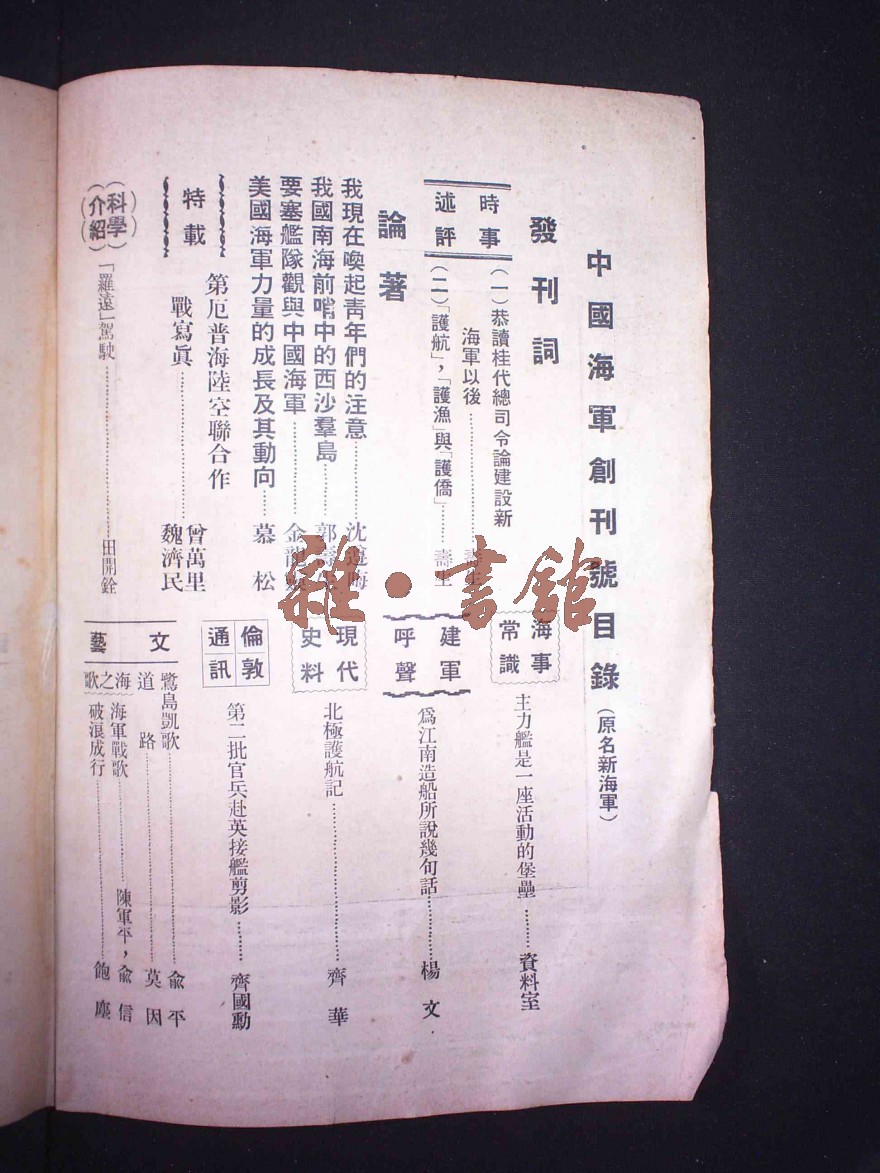 中國海軍創刊號目錄（原名新海軍）
發刊詞
時事述評
（一）恭讀桂代總司令論建設新
海軍以後………壽生
（二）「護航」，「護漁」與「護僑」……壽生
論著
我現在喚起靑年們的注意………沈
我國南海前哨中的西沙羣島………郭壽生
要塞艦隊觀與中國海軍………金龍
美國海軍力量的成長及其動向……慕松
特載
第厄普海陸空聯合作
戰寫眞………曾萬里
魏濟民
（科學介紹）
「羅遠」駕駛………田開銓
海事常識
主力艦是一座活動的堡壘………資料室
建軍呼聲
爲江南造船所說幾句話………楊文
現代史料
北極護航記………齊華
倫敦通訊
第二批官兵赴英接艦剪影………齊國勳
文藝
鷺島凱歌………俞平
道路………莫因
海之歌
海軍戰歌………陳軍平，俞信
破浪成行………鮑塵
雜·書館